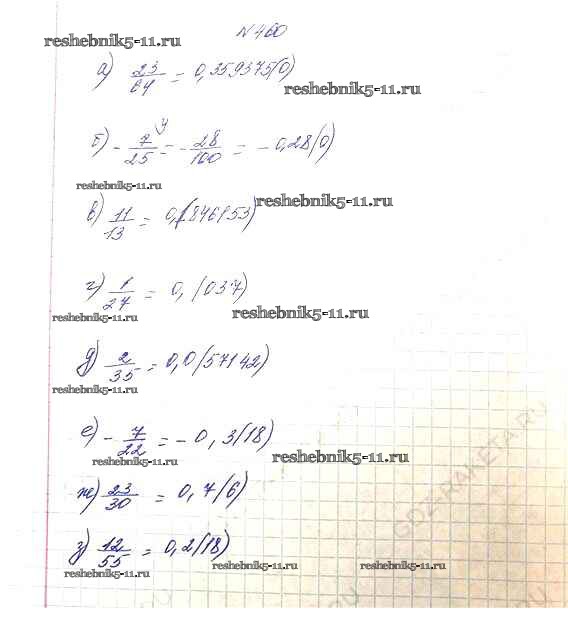 №460
reshebnik5-11.ru
а) 23/64 = 0,359375(0)
reshebnik5-11.ru
б) - 7/25 ⁴⁾ = - 28/100 = - 0,28(0)
reshebnik5-11.ru
reshebnik5-11.ru
в) 11/13 = 0,(846153)
г) 1/27 = 0,(037)
reshebnik5-11.ru
reshebnik5-11.ru
д) 2/35 = 0,0(57142)
reshebnik5-11.ru
е) - 7/22 = - 0,3(18)
reshebnik5-11.ru
reshebnik5-11.ru
ж) 23/30 = 0,7(6)
GDZ-RAKETA.RU
з) 12/55 = 0,2(18)
reshebnik5-11.ru reshebnik5-11.ru reshebnik5-11.ru